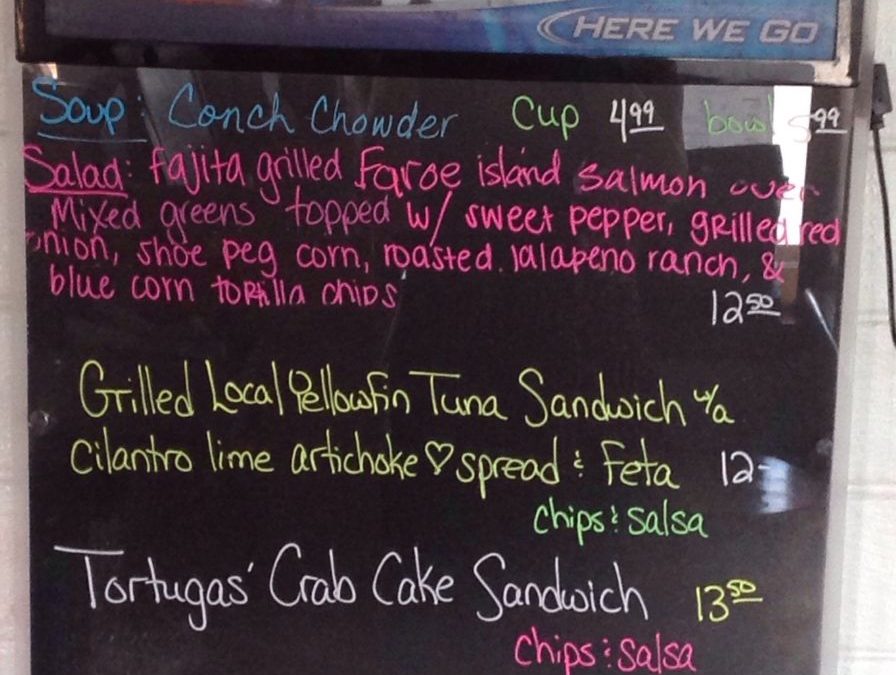 HERE WE GO
Soup: Conch Chowder Cup 4.99 bowl 5.99
Salad: fajita grilled Faroe island salmon over
Mixed greens topped w/ sweet pepper, grilled red
onion, shoe peg corn, roasted jalapeno ranch, &
blue corn tortilla chips
12.50
Grilled Local Yellowfin Tuna Sandwich w/a
cilantro lime artichoke ♡ spread & Feta 12-
chips & salsa
Tortugas' Crab Cake Sandwich 13.50
chips & salsa